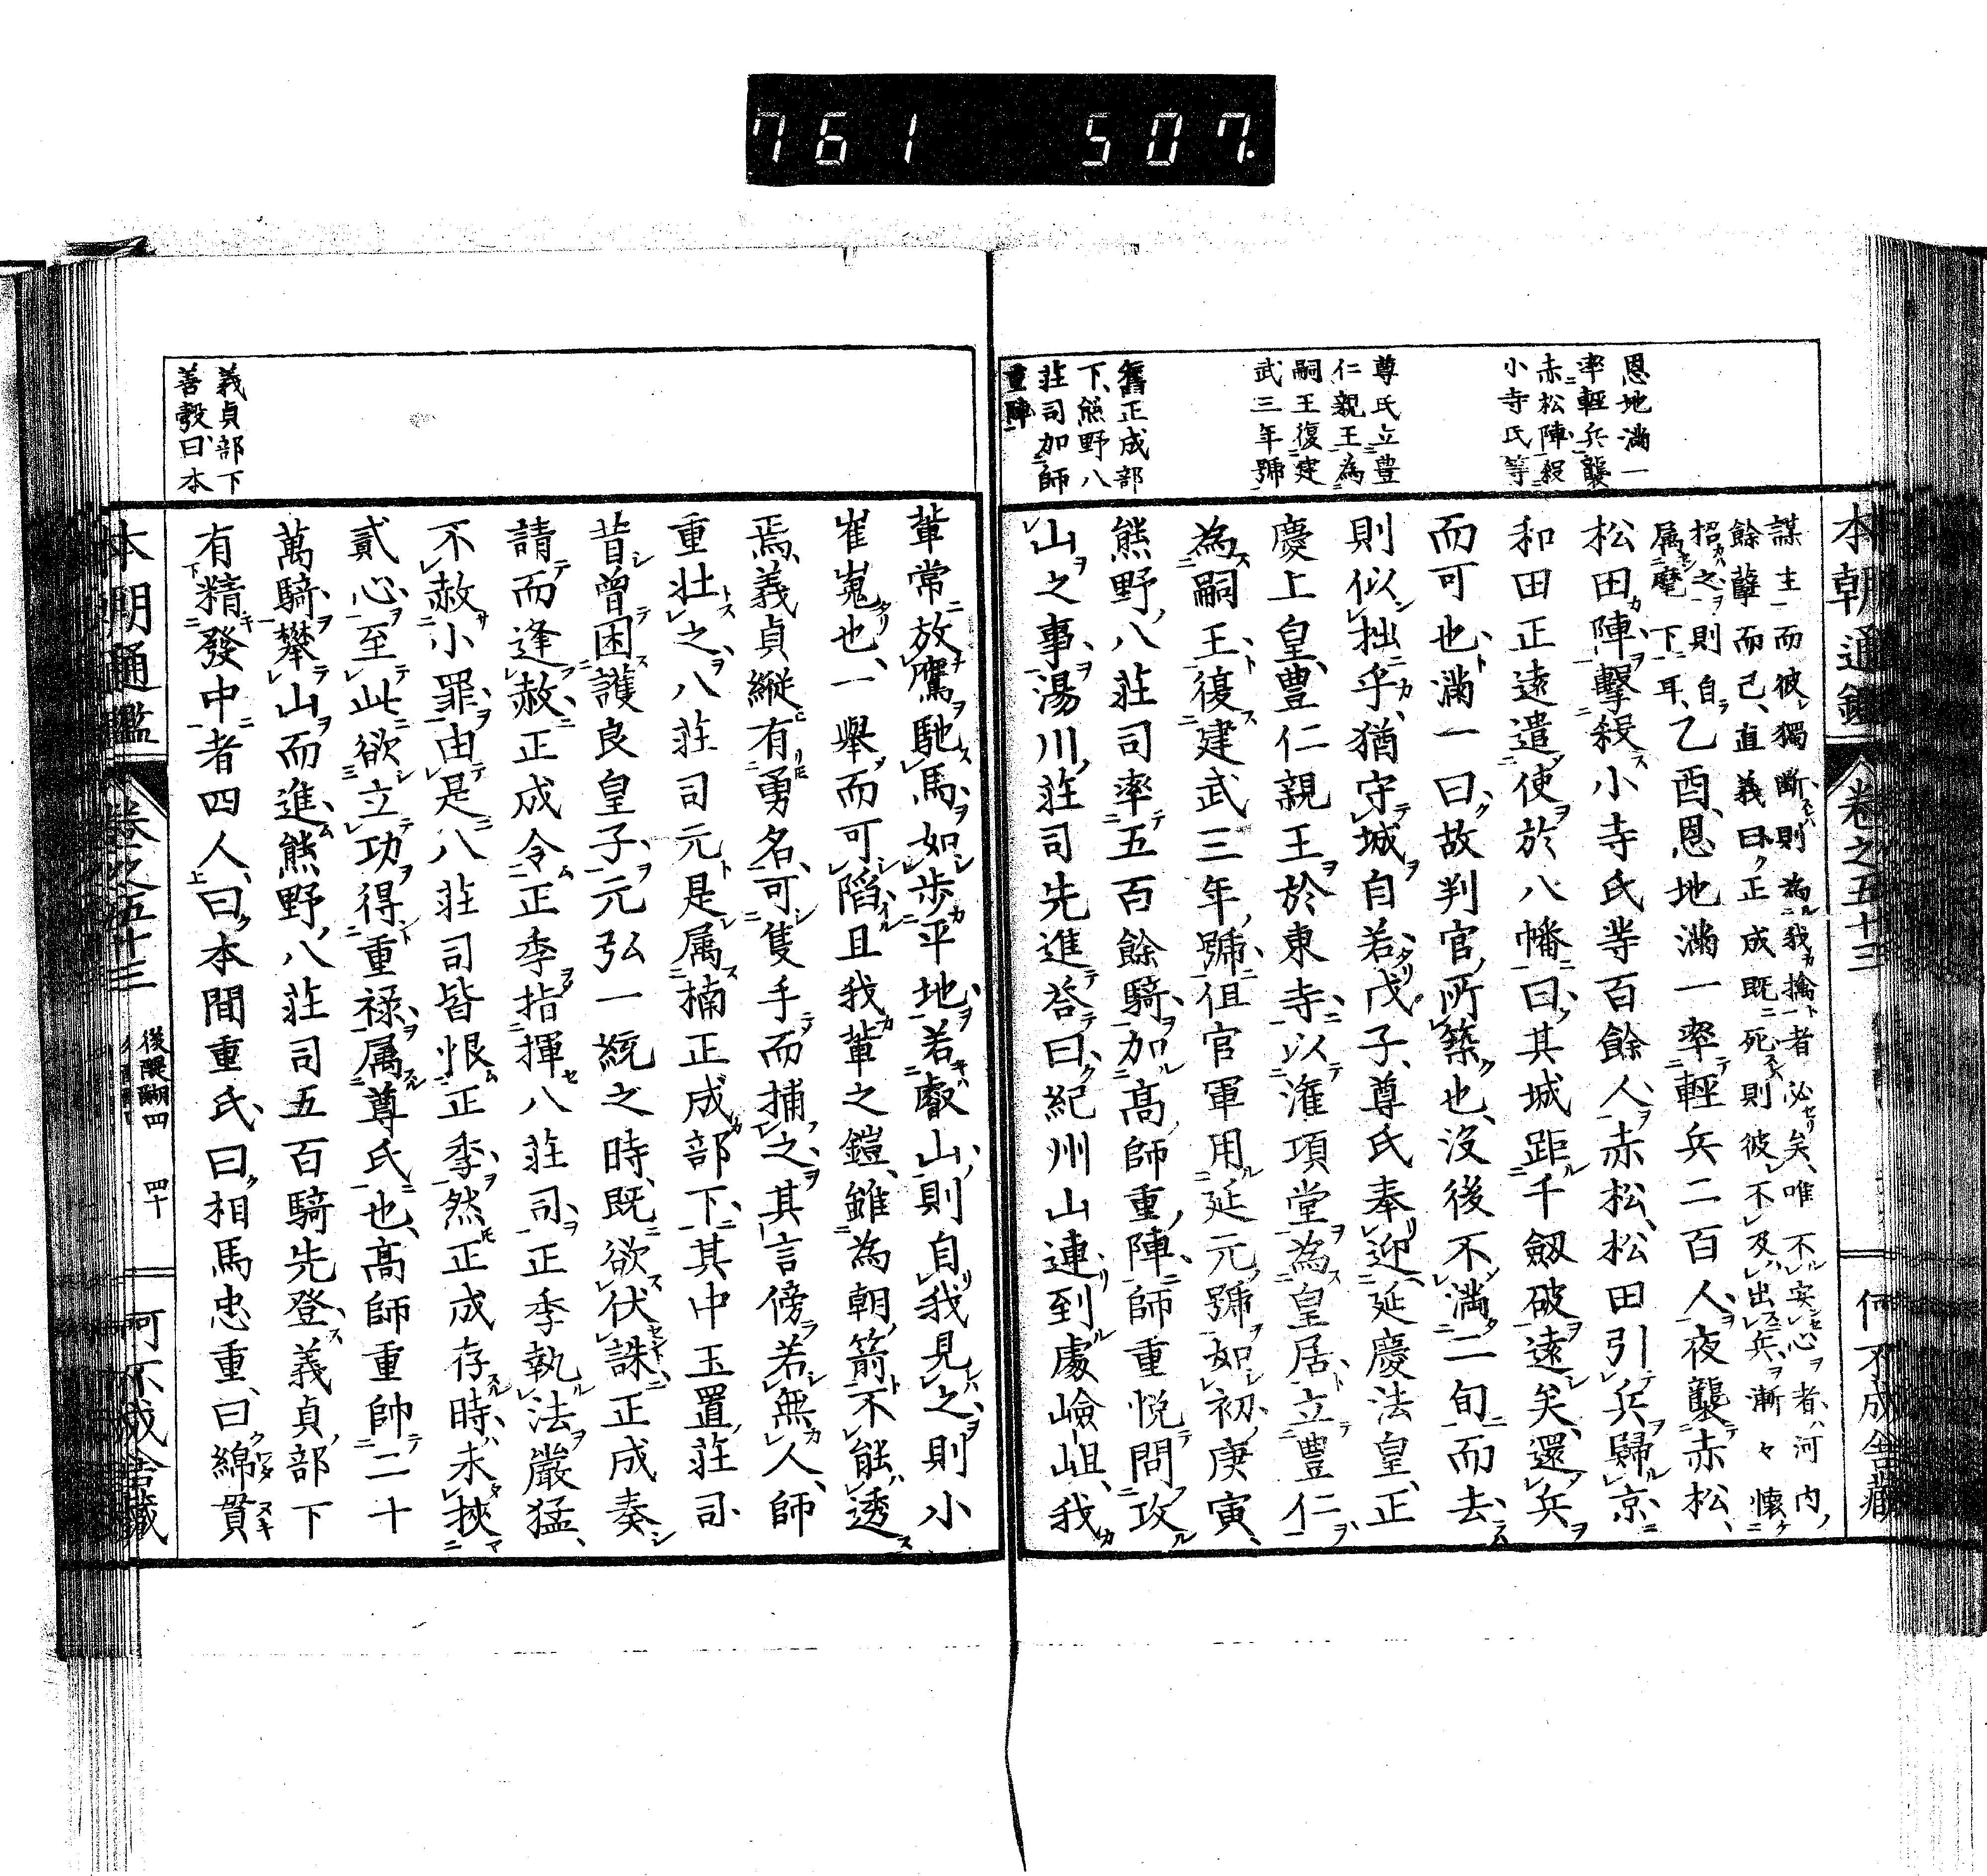 761 507.
本朝通鑑 卷之五十三 何不成舎蔵
恩地滿一
率輕兵襲
赤松陣殺
小寺氏等
尊氏立豊
仁親王為
嗣王復建
武三年號
舊正成部
下熊野八
莊司加師
重陣
謀主而彼獨斷則為我擒者必矣唯不安心者河内
餘孽而已直義曰正成既死則彼不及出兵漸々懐
招之則自
属麾下耳乙酉恩地滿一率輕兵二百人夜襲赤松
松田陣擊殺小寺氏等百餘人赤松松田引兵歸京
和田正遠遣使於八幡曰其城距千劔破遠矣還兵
而可也滿一曰故判官所築也沒後不滿二旬而去
則似拙乎猶守城自若戊子尊氏奉迎延慶法皇正
慶上皇豊仁親王於東寺以潅項堂為皇居立豊仁
為嗣王復建武三年號但官軍用延元號如初庚寅
熊野八莊司率五百餘騎加高師重陣師重悦問攻
山之事湯川莊司先進答曰紀州山連到處嶮岨我
輩常放鷹馳馬如歩平地若叡山則自我見之則小
崔嵬也一舉而可䧟且我輩之鎧雖為朝箭不能透
焉義貞縱有勇名可隻手而捕之其言傍若無人師
重壮之八莊司元是属楠正成部下其中玉置莊司
昔曽困護良皇子元弘一統之時既欲伏誅正成奏
請而逢赦正成令正季指揮八莊司正季執法嚴猛
不赦小罪由是八莊司皆恨正季然正成存時未挾
貳心至此欲立功得重禄属尊氏也高師重帥二十
萬騎攀山而進熊野八莊司五百騎先登義貞部下
有精發中者四人曰本間重氏曰相馬忠重曰綿貫
義貞部下
善彀曰本
本朝通鑑 卷之五十三 後醍醐四 四十 何不成舎蔵